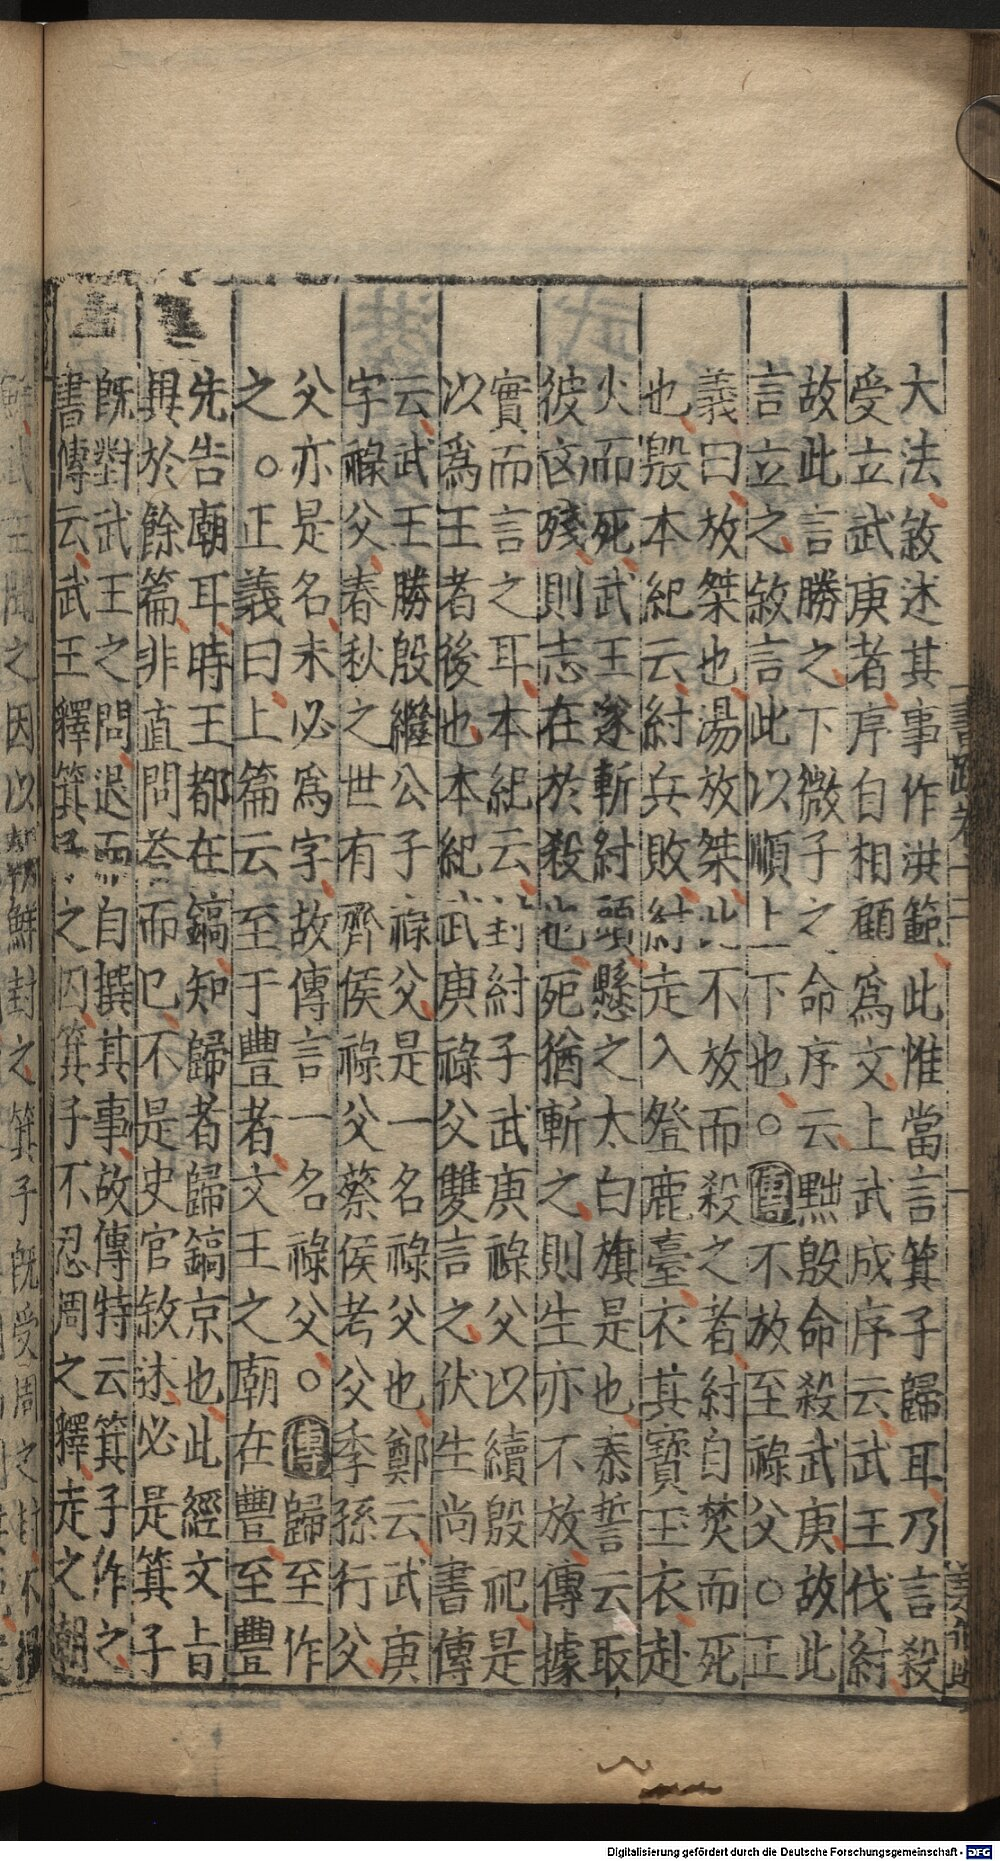 大法敘述其事作洪範此惟當言箕子歸耳乃言殺
受立武庚者序自相顧爲文上武成序云武王伐紂
故此言勝之下微子之命序云黜殷命殺武庚故此
言立之敘言此以順上下也○傳不放至祿父○正
義曰放桀也湯放桀此不放而殺之者紂自焚而死
也殷本紀云紂兵敗紂走入登鹿臺衣其寶玉衣赴
火而死武王遂斬紂頭懸之太白旗是也泰誓云取
彼凶殘則志在於殺也死猶斬之則生亦不放傳據
實而言之耳本紀云封紂子武庚祿父以續殷祀是
以爲王者後也本紀武庚祿父雙言之伏生尚書傳
云武王勝殷繼公子祿父是一名祿父也鄭云武庚
字祿父春秋之世有齊侯祿父蔡侯考父季孫行父
父亦是名未必爲字故傳言一名祿父○傳歸至作
之○正義曰上篇云至于豐者文王之廟在豐至豐
先告廟耳時王都在鎬知歸者歸鎬京也此經文旨
異於餘篇非直問荅而已不是史官敘述必是箕子
旣對武王之問退而自撰其事故傳特云箕子作之
書傳云武王釋箕子之囚箕子不忍周之釋走之朝
鮮武王聞之因以朝鮮封之箕子旣受周之封不得
Digitalisierung gefördert durch die Deutsche Forschungsgemeinschaft - DFG